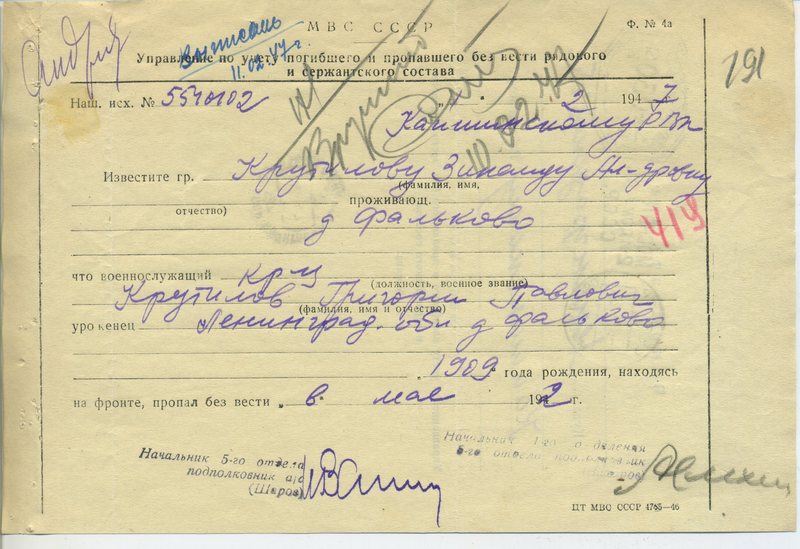 МВС СССР
Ф. № 4а
Андрия
Выписань
11.02.47 г
191
Управление по учету погибшего и пропавшего без вести рядового
и сержантского состава
Наш. исх. № 5540102 „ " 2 1947
Калининскому РВК
10.02.47
Известите гр. Крутилову Зинаиду Ал-дровну
(фамилия, имя,
отчество) проживающ.
д Фальково
419
что военнослужащий кр-ц
(должность, военное звание)
Крутилов Григорий Павлович
(фамилия, имя и отчество)
уроженец Ленинград. обл. д Фальково
1909 года рождения, находясь
на фронте, пропал без вести „ в мае 1942 г.
Начальник 5-го отдела
подполковник а/с
(Шаров)
Начальник 1-го отделения
5-го отдела подполковник
ЦТ МВС СССР 4765—46